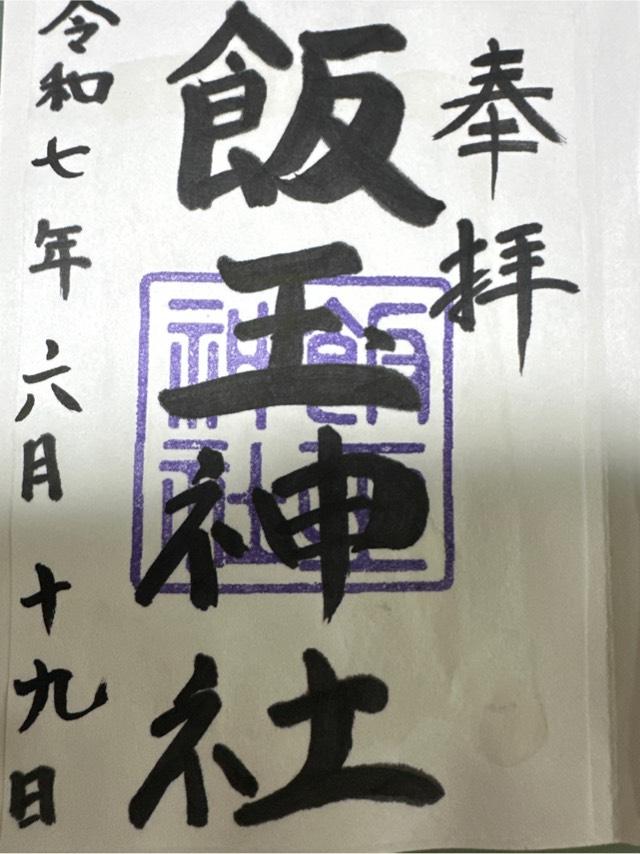 奉拝
飯玉神社
飯玉
神社
令和七年六月十九日